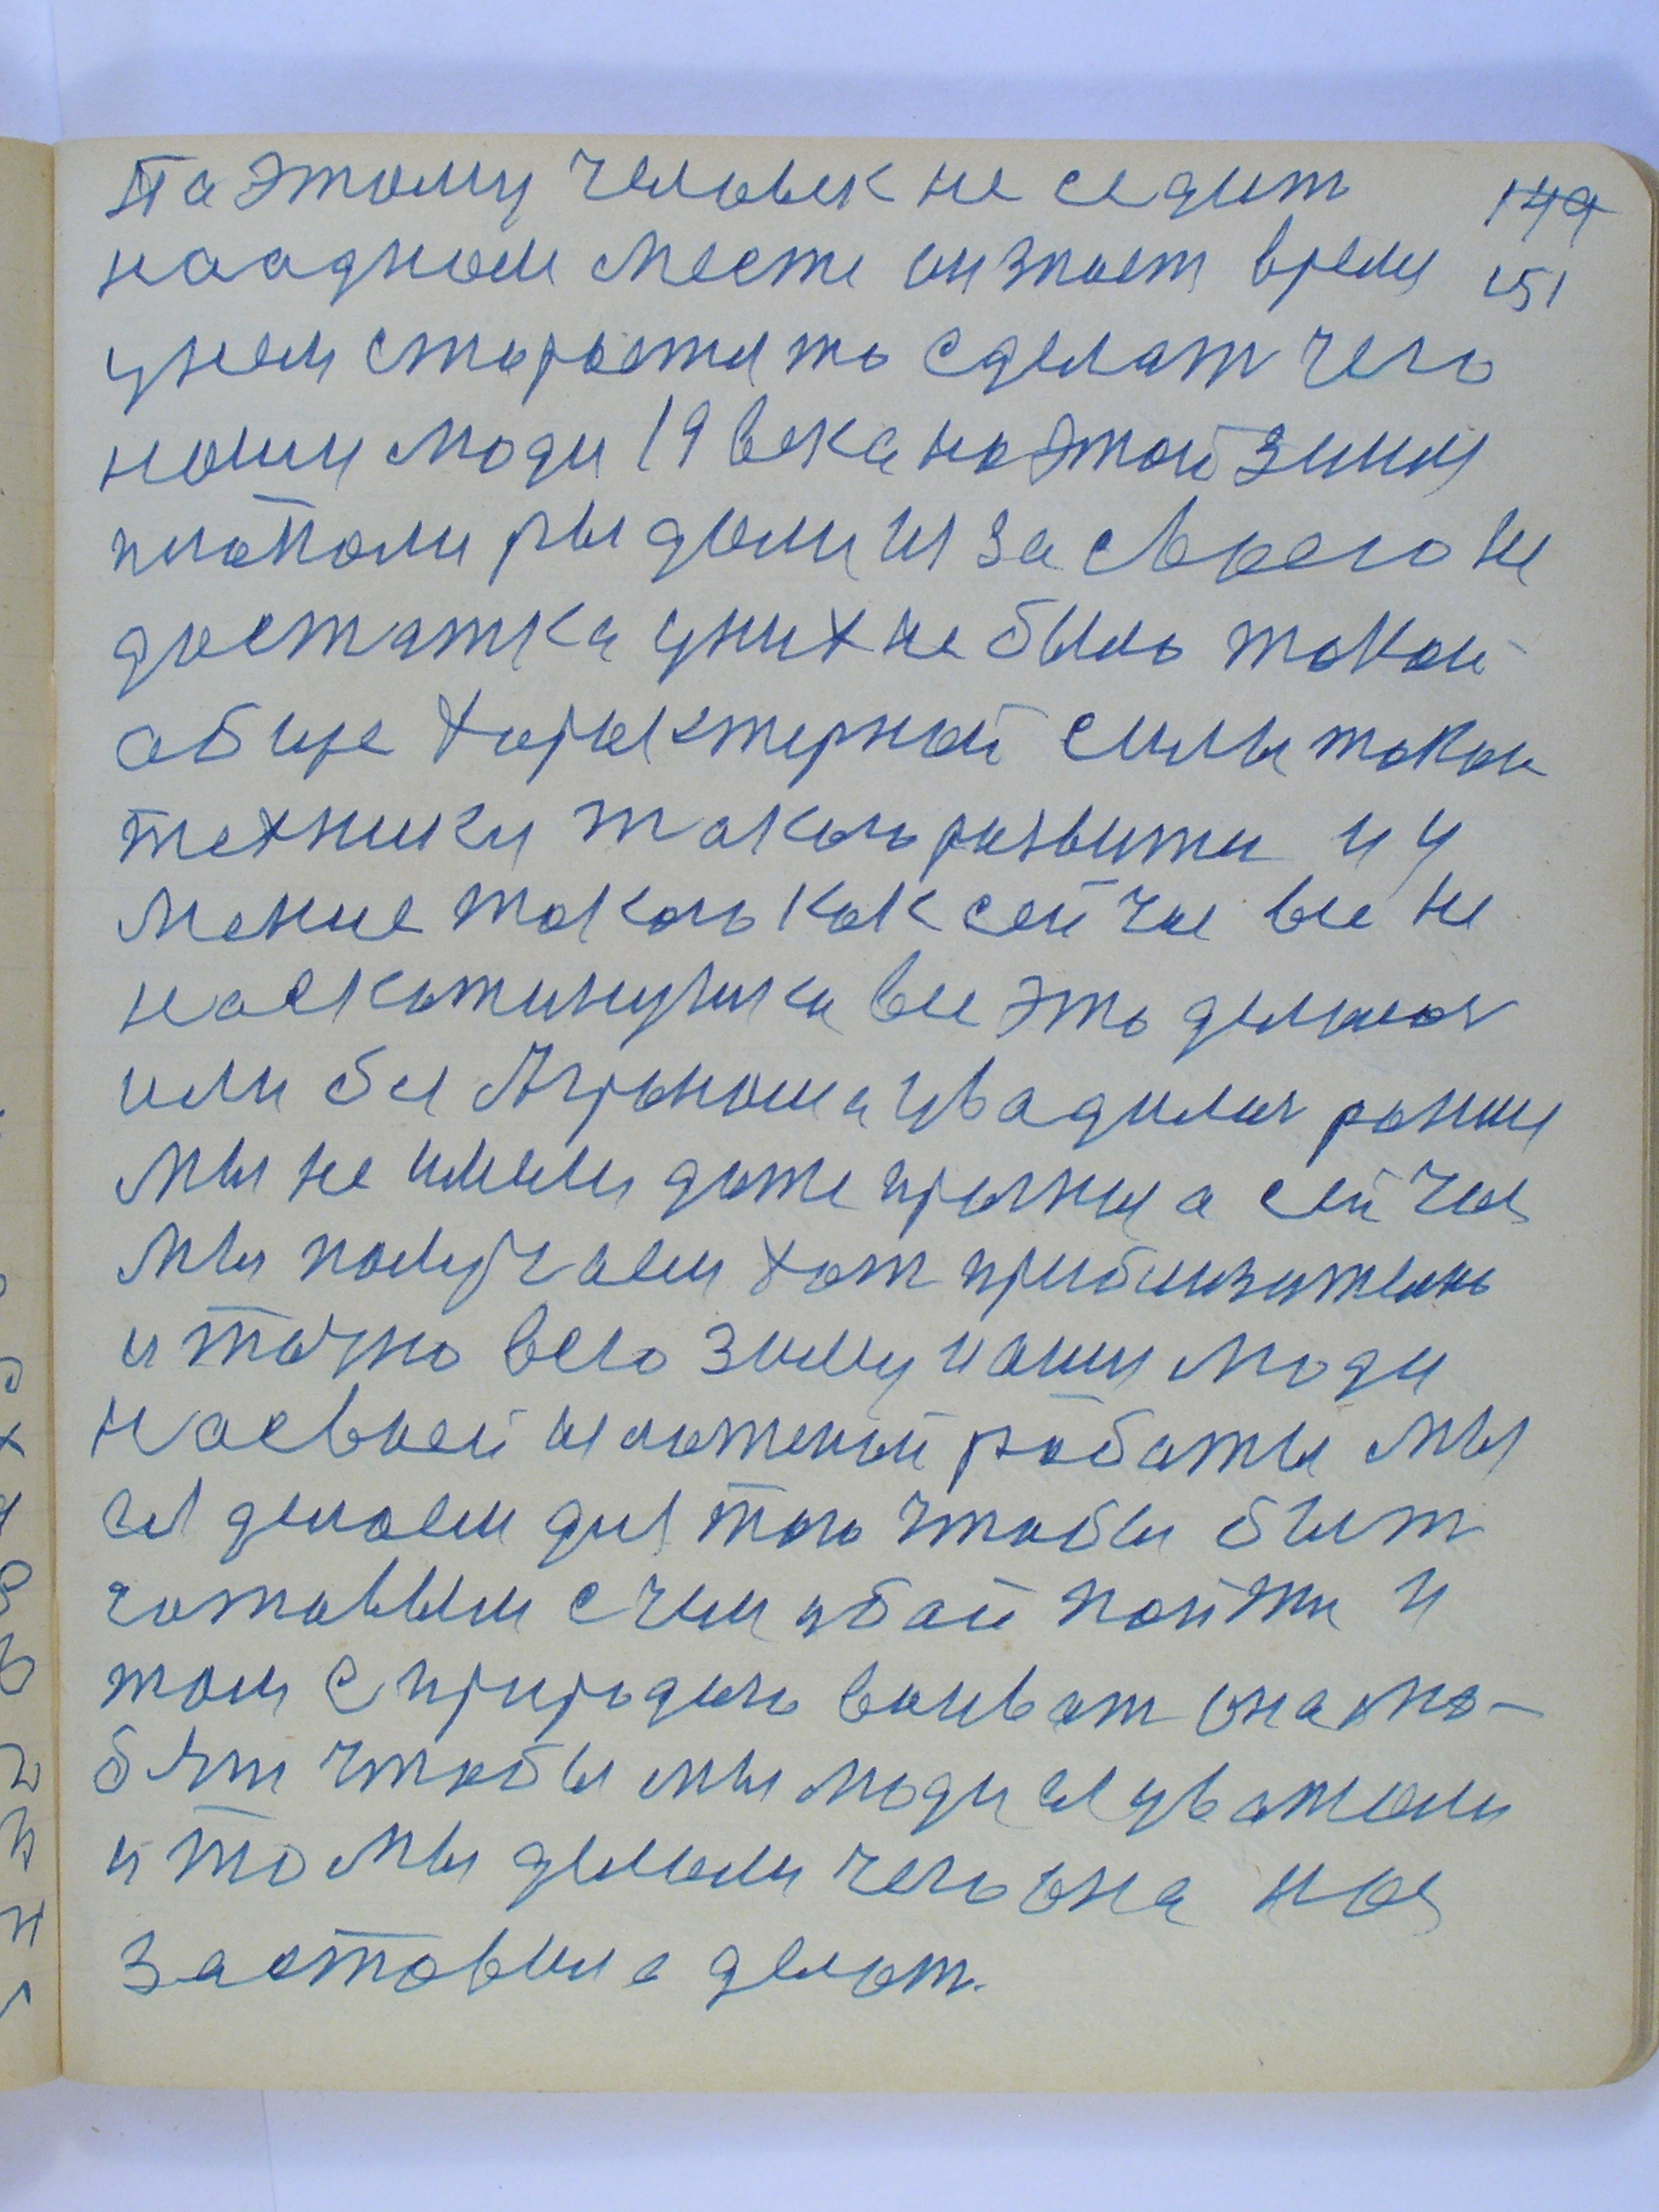 Па этому человек не седит 149
наадном месте он знает время 151
унём старается то сделат чего
наши люди 19 века на этой зимы
плакали рыдали из за своего не
достатка у них не было такой
обще характерной силы такой
техники такого развити и у
мение такого как сейчас все не
на скатину
все это делалос
или бы Агронома уважали раньше
мы не имели даже пряник а сейчас
мы получаем хот приблизително
и точно всю зиму наши люди
на своей работы мы
её делаем для того чтобы быт
готовым с чем убой пойти и
том с природою воиват она лю-
бит чтобы мы люди её уважали
и то мы делали чего она нас
заставила делат.